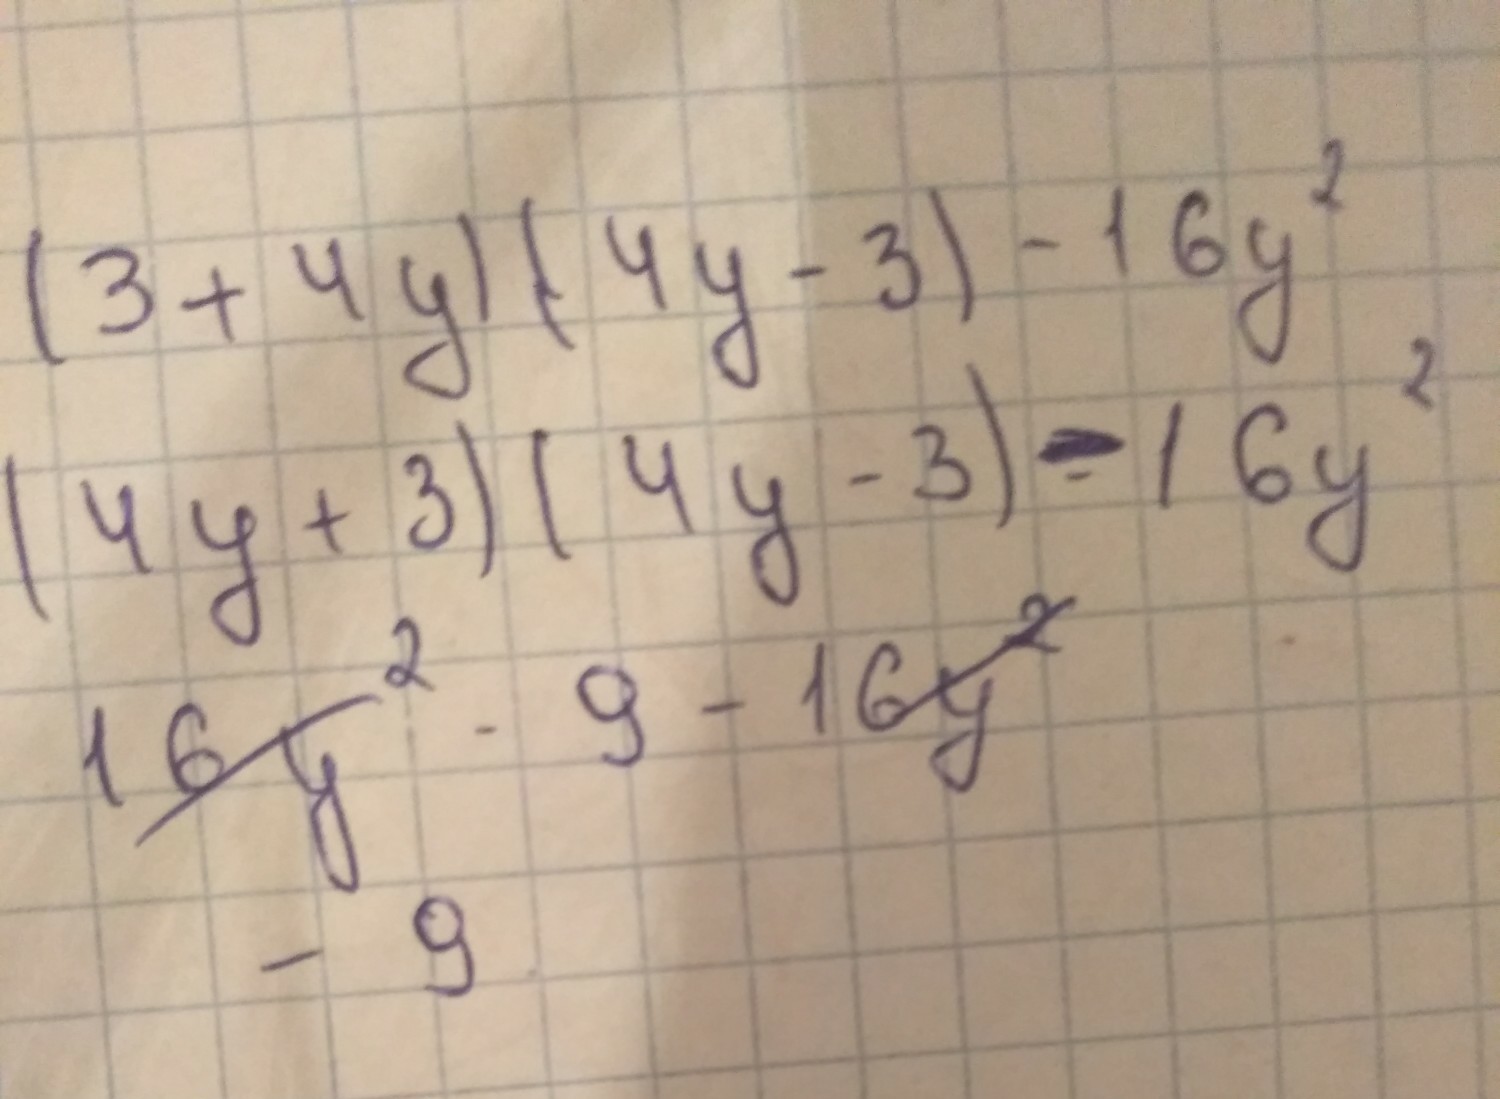 (3+4y)(4y-3)-16y²
(4y+3)(4y-3)-16y²
16y²-9-16y²
-9